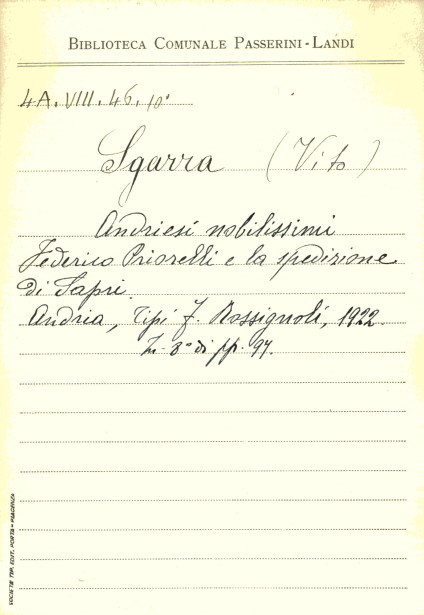 BIBLIOTECA COMUNALE PASSERINI-LANDI
4A. VIII. 46. 10°
Sgarra (Vito)
Andriesi nobilissimi
Federico Priorelli e la spedizione
di Sapri.
Andria, Tipi F. Rossignoli, 1922.
In-8° di pp. 97.
SOCIETÀ TIP. EDIT. PORTA - PIACENZA